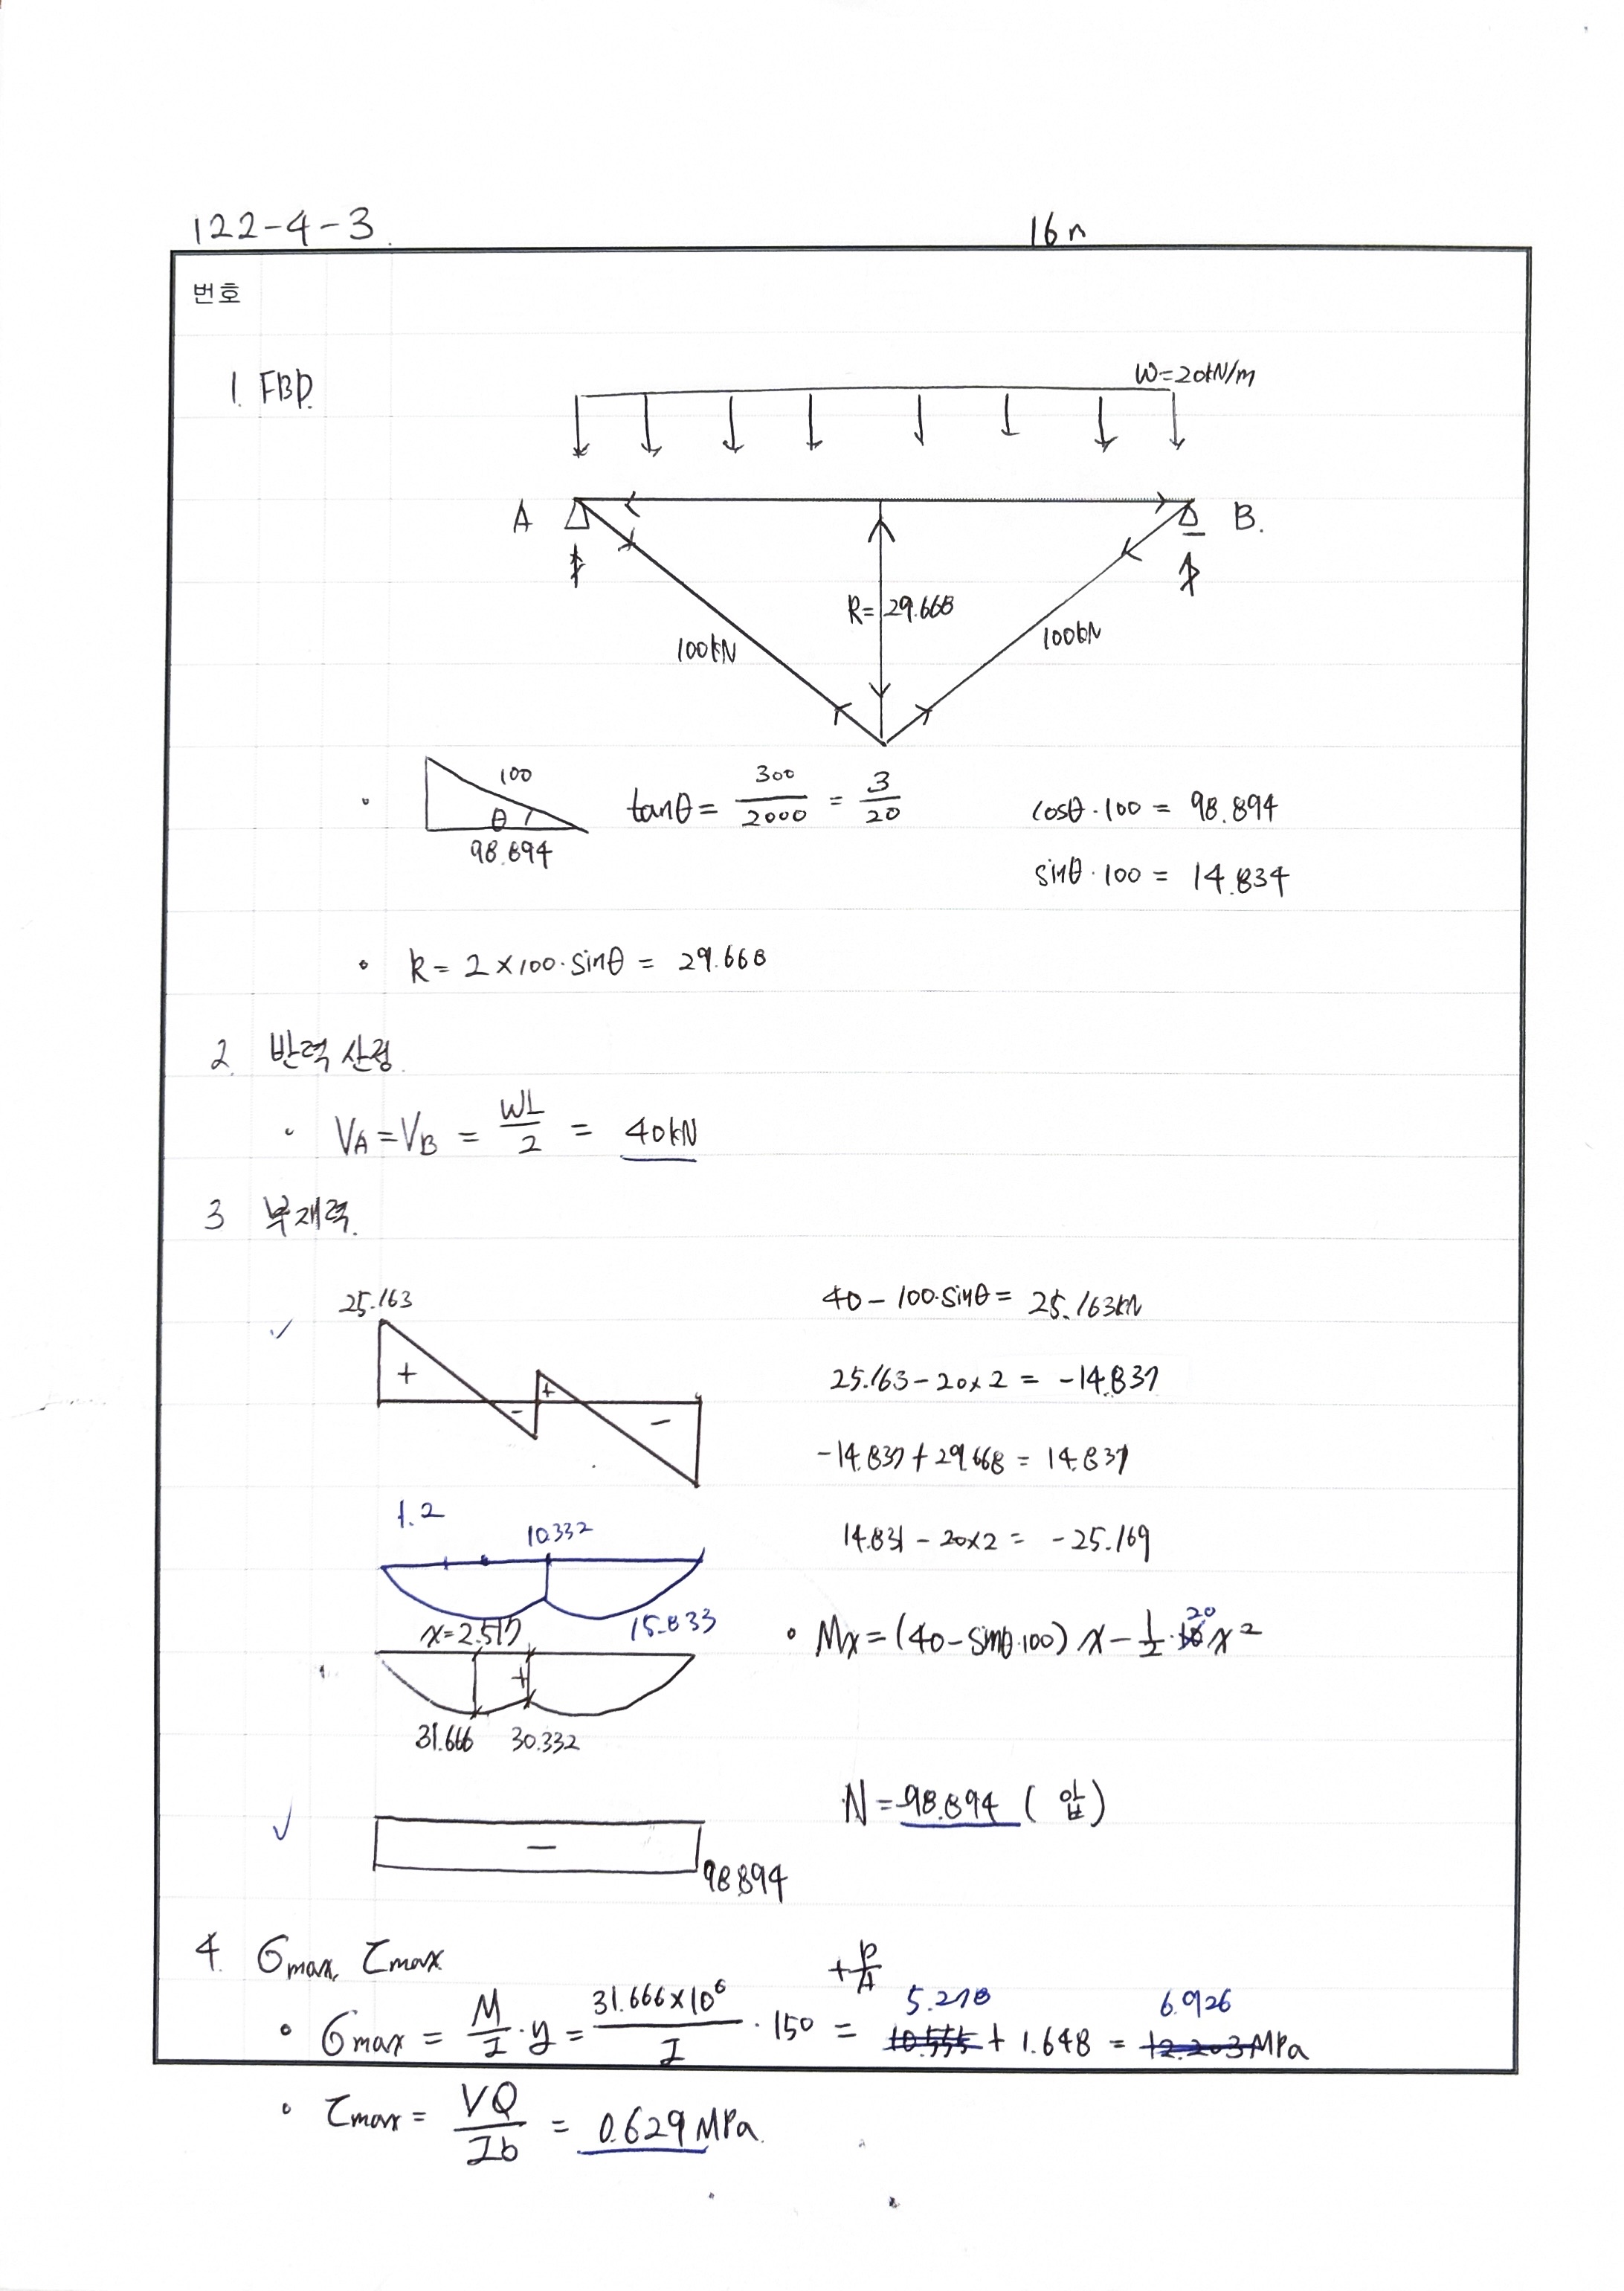 122-4-3.
16n
번호
1. FBD.
W=20kN/m
A
B.
R=29.668
100kN
100kN
100
θ
98.894
tanθ = 300/2000 = 3/20
cosθ·100 = 98.894
sinθ·100 = 14.834
R = 2×100·sinθ = 29.668
2. 반력 산정.
VA = VB = WL/2 = 40kN
3 부재력.
25.163
+
-
+
-
40 - 100·sinθ = 25.163kN
25.163 - 20×2 = -14.837
-14.837 + 29.668 = 14.837
14.831 - 20×2 = -25.169
1.2
10.332
15.833
x=2.517
+
31.666
30.332
Mx = (40 - sinθ·100)x - 1/2·20x²
N = -98.894 (압)
-
98.894
4. σmax, τmax
σmax = M/I·y = 31.666×10⁶/I · 150 + P/A = 10.555 5.278 + 1.648 = 12.203 6.926 MPa
τmax = VQ/Ib = 0.629 MPa.